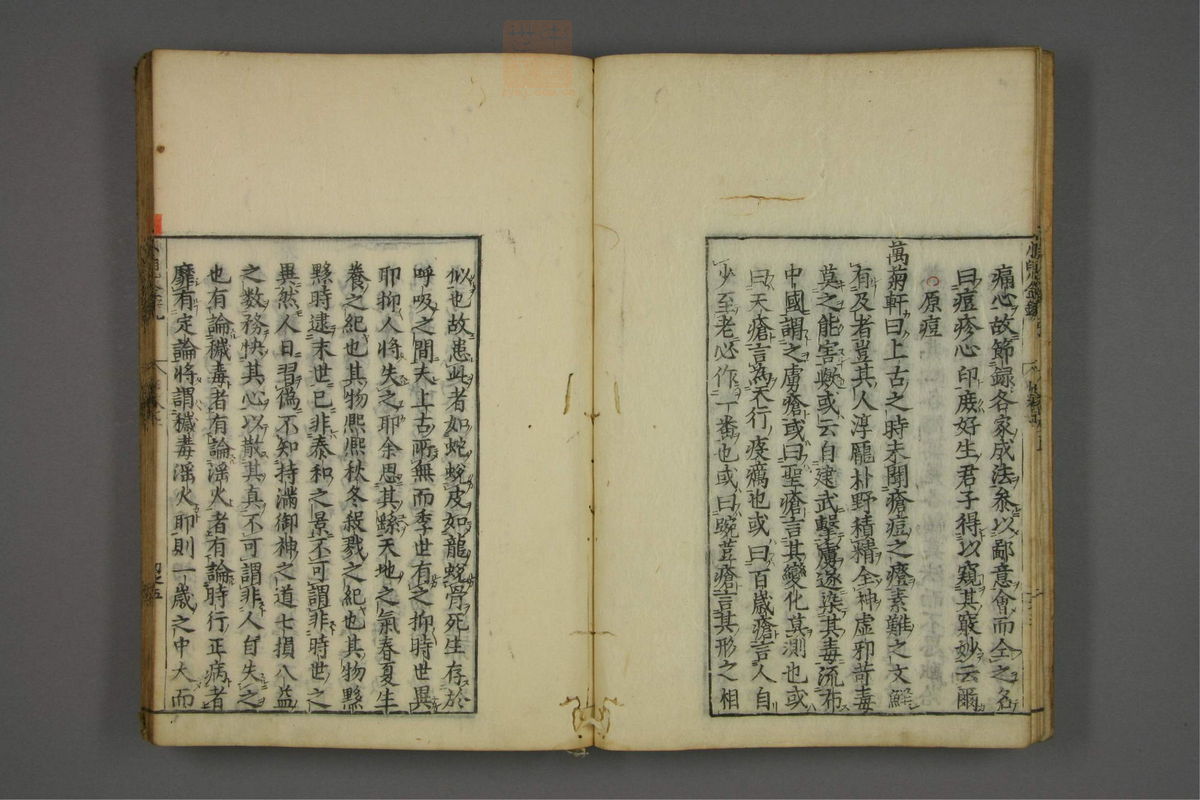 痛心故節録各家成法叅以鄙意會而全之名
曰痘疹心印庻好生君子得以窺其竅妙云爾
原痘
萬菊軒曰上古之時未聞瘡痘之癦素難之文鮮
有及者豈其人淳龎朴野積精全神虚邪苛毒
莫之能害歟或云自建武擊虜遂染其毒流布
中國謂之虜瘡或曰聖瘡言其變化莫測也或
曰天瘡言為天行疫癘也或曰百歲瘡言人自
少至老必作一番也或曰豌荳瘡言其形之相
似也故患此者如蛇蛻皮如龍蛻骨死生存於
呼吸之間夫上古所無而季世有之抑時世異
耶抑人將失之耶余思其繇天地之氣春夏生
養之紀也其物熈熈秋冬殺戮之紀也其物黙
黙時逮末世已非泰和之景不可謂非時世之
異然人日習偽不知持滿御神之道七損八益
之数務快其心以散其真不可謂非人自失之
也有論穢毒者有論淫火者有論時行正病者
靡有定論將謂穢毒淫火耶則一歲之中大而